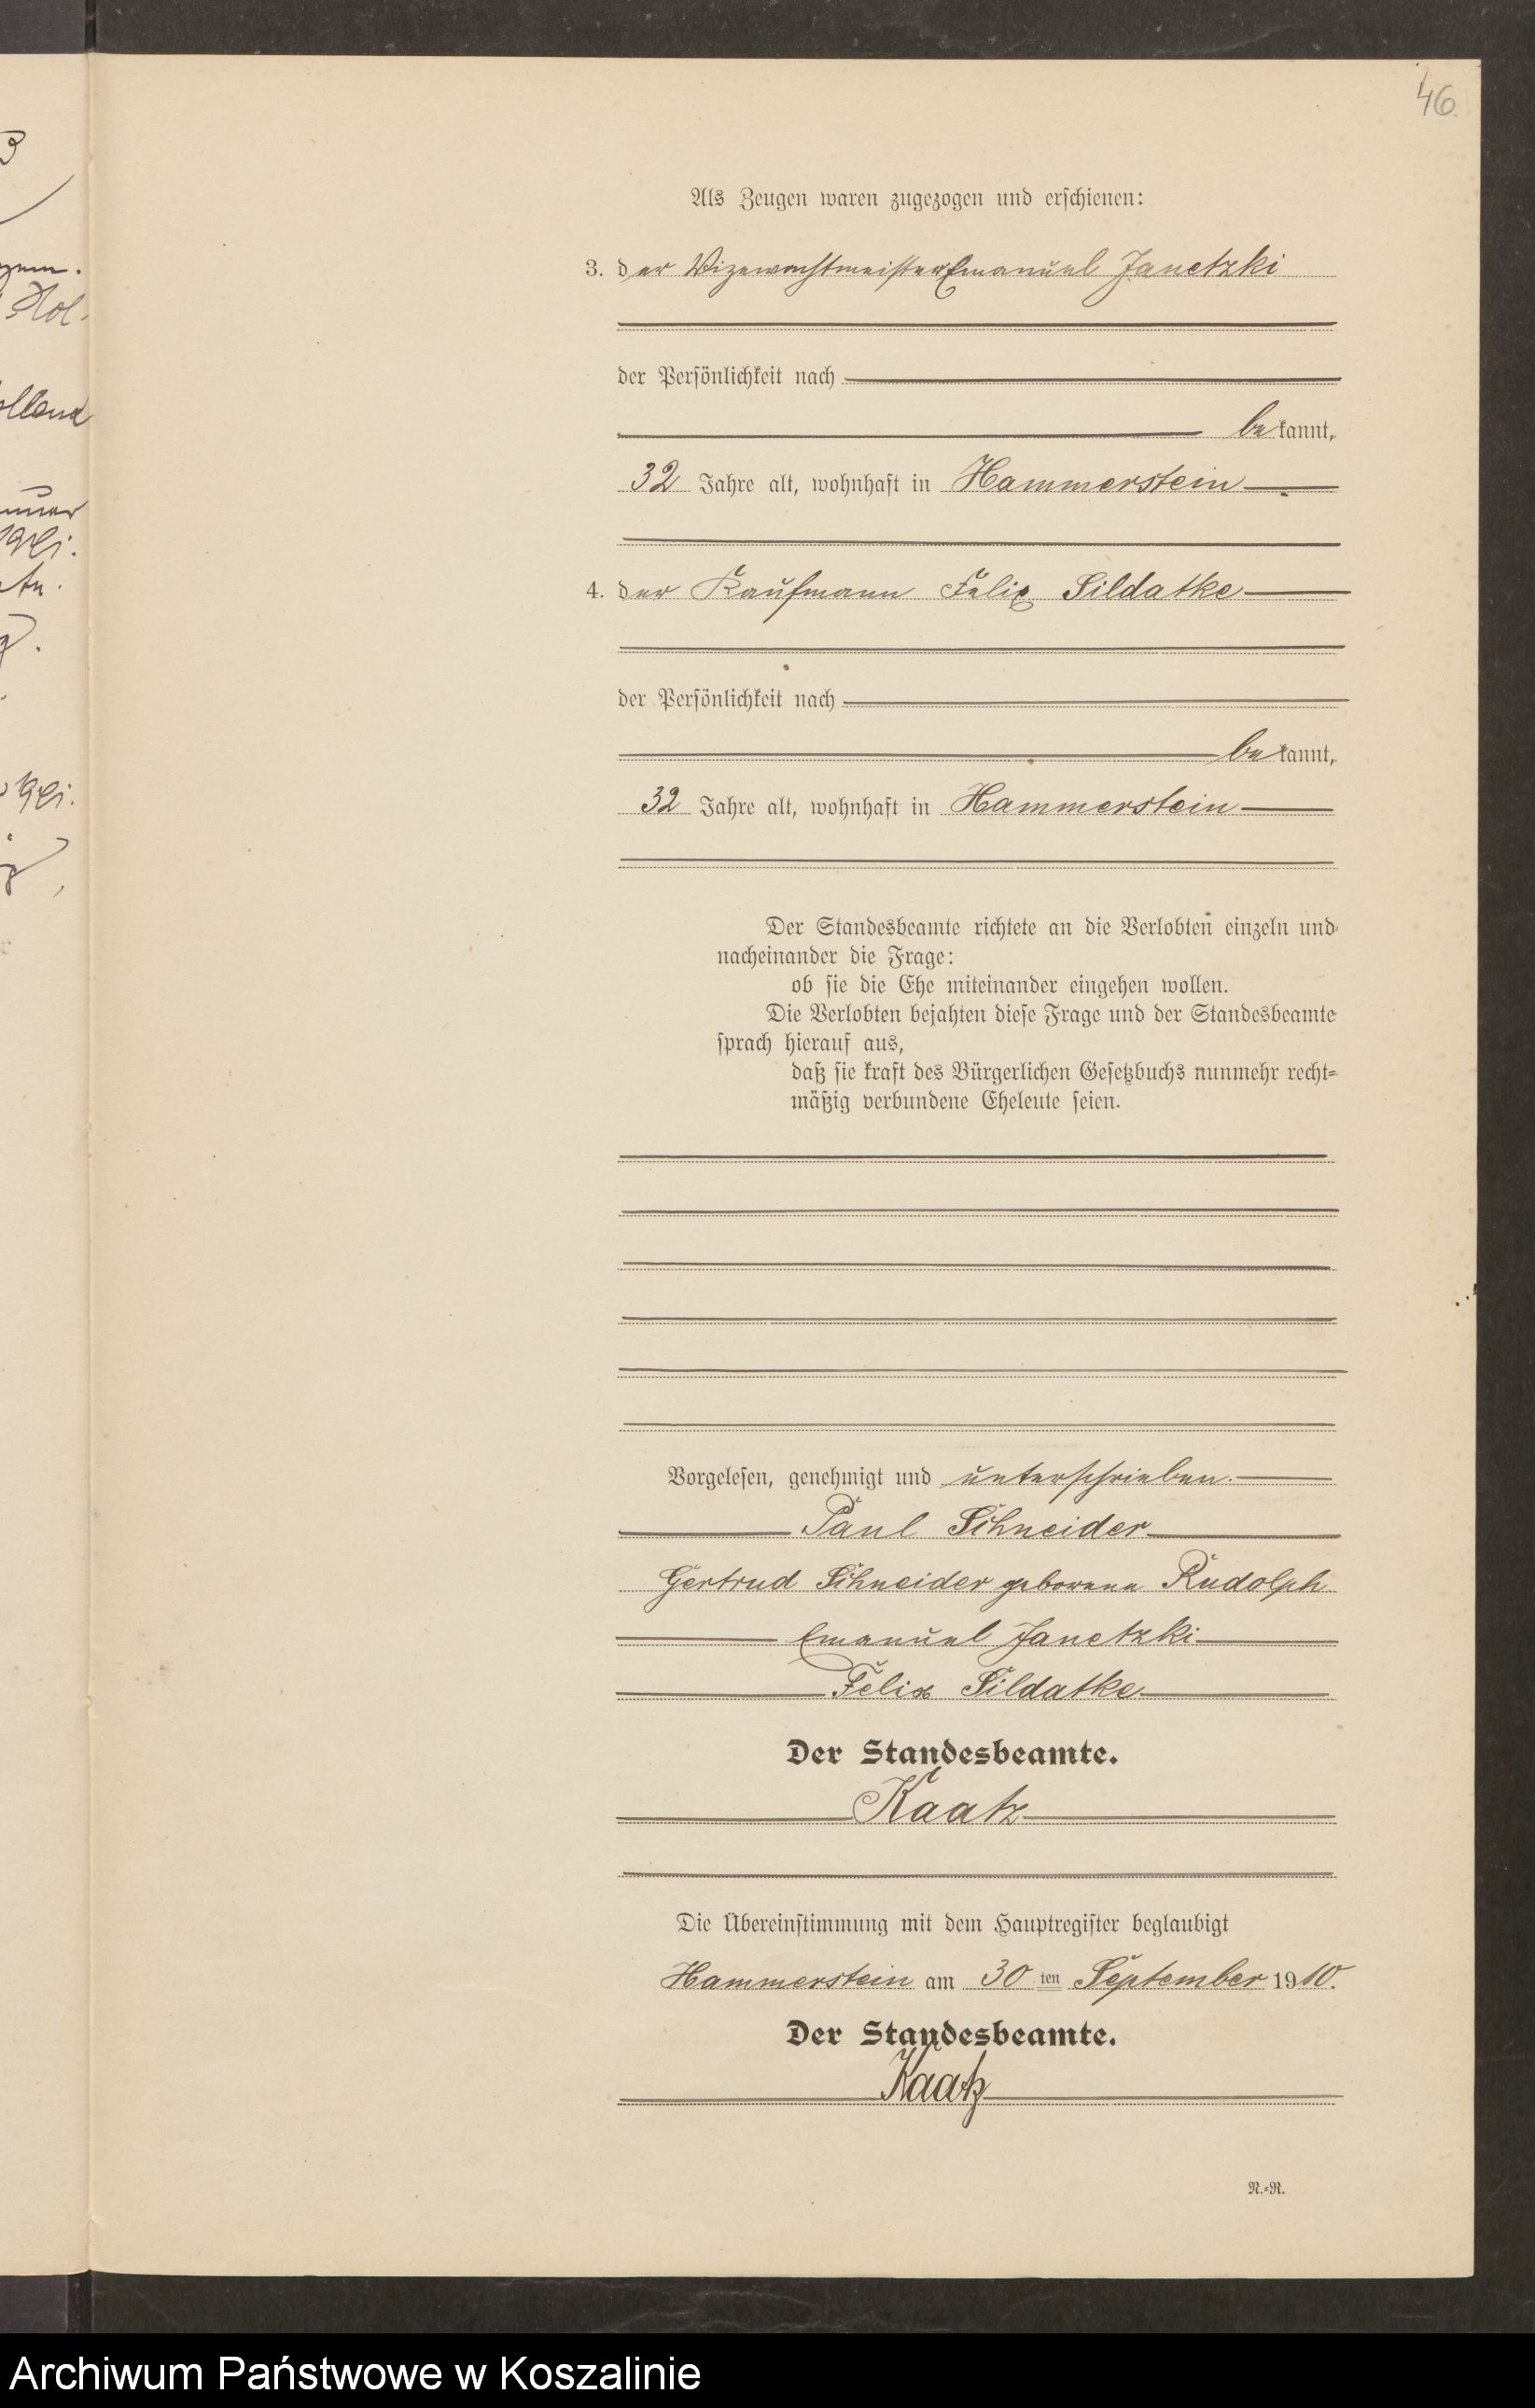 46
Als Zeugen waren zugezogen und erschienen:
3. der Vizewachtmeister Emanuel Janetzki
der Persönlichkeit nach
bekannt,
32 Jahre alt, wohnhaft in Hammerstein
4. der Kaufmann Felix Sildatke
der Persönlichkeit nach
bekannt,
32 Jahre alt, wohnhaft in Hammerstein
Der Standesbeamte richtete an die Verlobten einzeln und
nacheinander die Frage:
ob sie die Ehe miteinander eingehen wollen.
Die Verlobten bejahten diese Frage und der Standesbeamte
sprach hierauf aus,
daß sie kraft des Bürgerlichen Gesetzbuchs nunmehr recht-
mäßig verbundene Eheleute seien.
Vorgelesen, genehmigt und unterschrieben.
Paul Schneider
Gertrud Schneider geborene Rudolph
Emanuel Janetzki
Felix Sildatke
Der Standesbeamte.
Kaatz
Die Übereinstimmung mit dem Hauptregister beglaubigt
Hammerstein am 30 ten September 1910.
Der Standesbeamte.
Kaatz
N.-R.
Archiwum Państwowe w Koszalinie